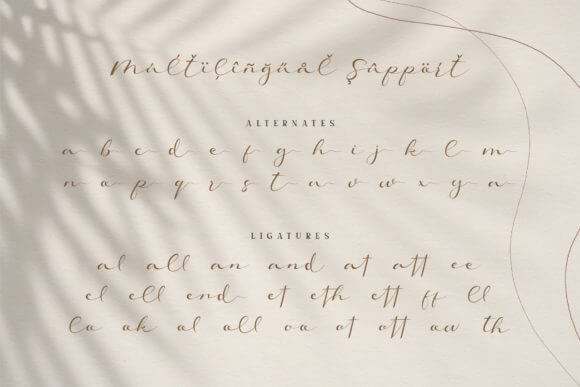 Múlťïļîñğüåľ Şûppöŕť
ALTERNATES
a b c d e f g h i j k l m
n o p q r s t u v w x y z
LIGATURES
al all an and at att ee
el ell end et eth ett ff ll
lo ok ol oll oo ot ott ow th